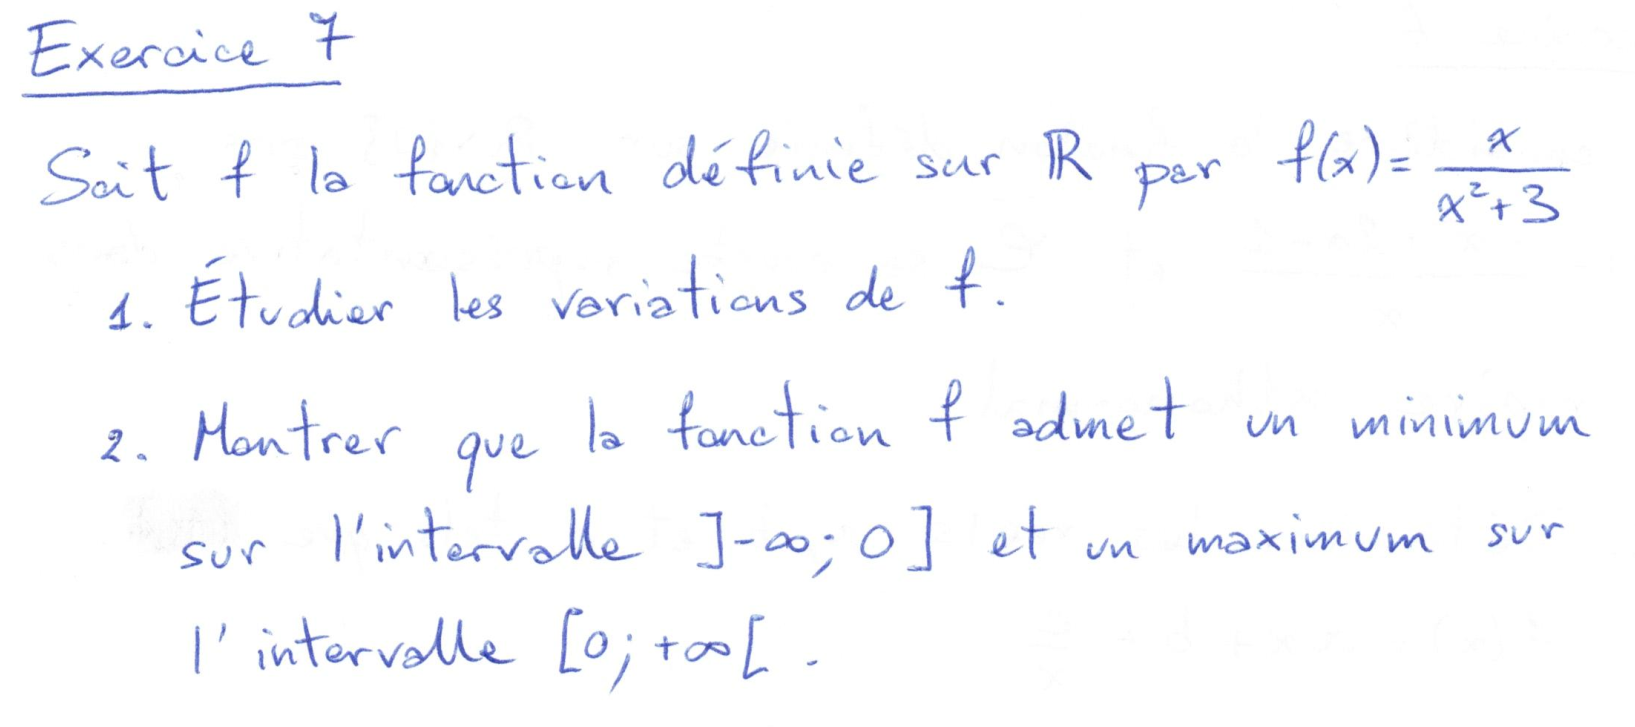 Exercice 7
Soit f la fonction définie sur ℝ par f(x) = x/(x²+3)
1. Étudier les variations de f.
2. Montrer que la fonction f admet un minimum
sur l'intervalle ]-∞; 0] et un maximum sur
l'intervalle [0; +∞[.